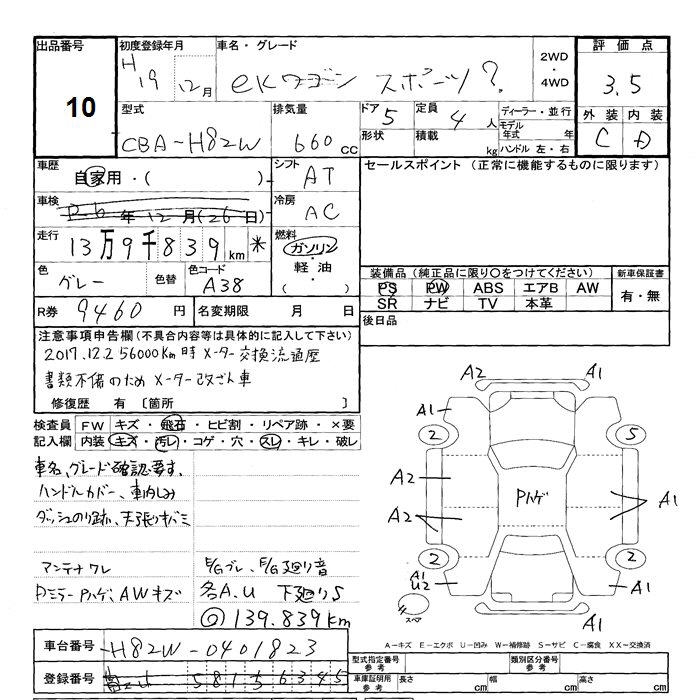 出品番号 10
初度登録年月 H19 12月
車名・グレード ekワゴン スポーツ?
2WD・4WD
評価点 3.5
外装 C 内装 D
型式 CBA-H82W
排気量 660 cc
ドア 5 定員 4 人
形状 積載 kg
ディーラー・並行
モデル年式 年
ハンドル 左・右
車歴 自家用・( )
シフト AT
セールスポイント (正常に機能するものに限ります)
車検 R-6年12月(26日)
冷房 AC
走行 13万9千839km *
燃料 ガソリン・軽油・( )
色 グレー 色替 色コード A38
装備品(純正品に限り○をつけてください) 新車保証書
PS PW ABS エアB AW 有・無
SR ナビ TV 本革
R券 9460円 名変期限 月 日
後日品
注意事項申告欄(不具合内容等は具体的に記入して下さい)
2017.12.2 56000Km時メーター交換流通歴
書類不備のためメーター改ざん車
修復歴 有〔箇所 〕
検査員記入欄 FW キズ・飛石・ヒビ割・リペア跡・×要
内装 キズ・汚レ・コゲ・穴・スレ・キレ・破レ
車名、グレード確認要す、
ハンドルカバー、車内しみ
ダッシュのり跡、天張りキバミ
アンテナワレ E/Gブレ、E/G廻り音
DミラーPハゲ、AWキズ 各A.U 下廻りS
◎139.839km
A2 A1
A1 A1
2 5
A2 Pハゲ A1
A2
2 2
A1 U2 A1
スペア A1
A-キズ E-エクボ U-凹み W-補修跡 S-サビ C-腐食 XX-交換済
車台番号 H82W-0401823
型式指定番号 参考 類別区分番号 参考
登録番号 581 5 6345
車庫証明用 参考 長さ cm 幅 cm 高さ cm